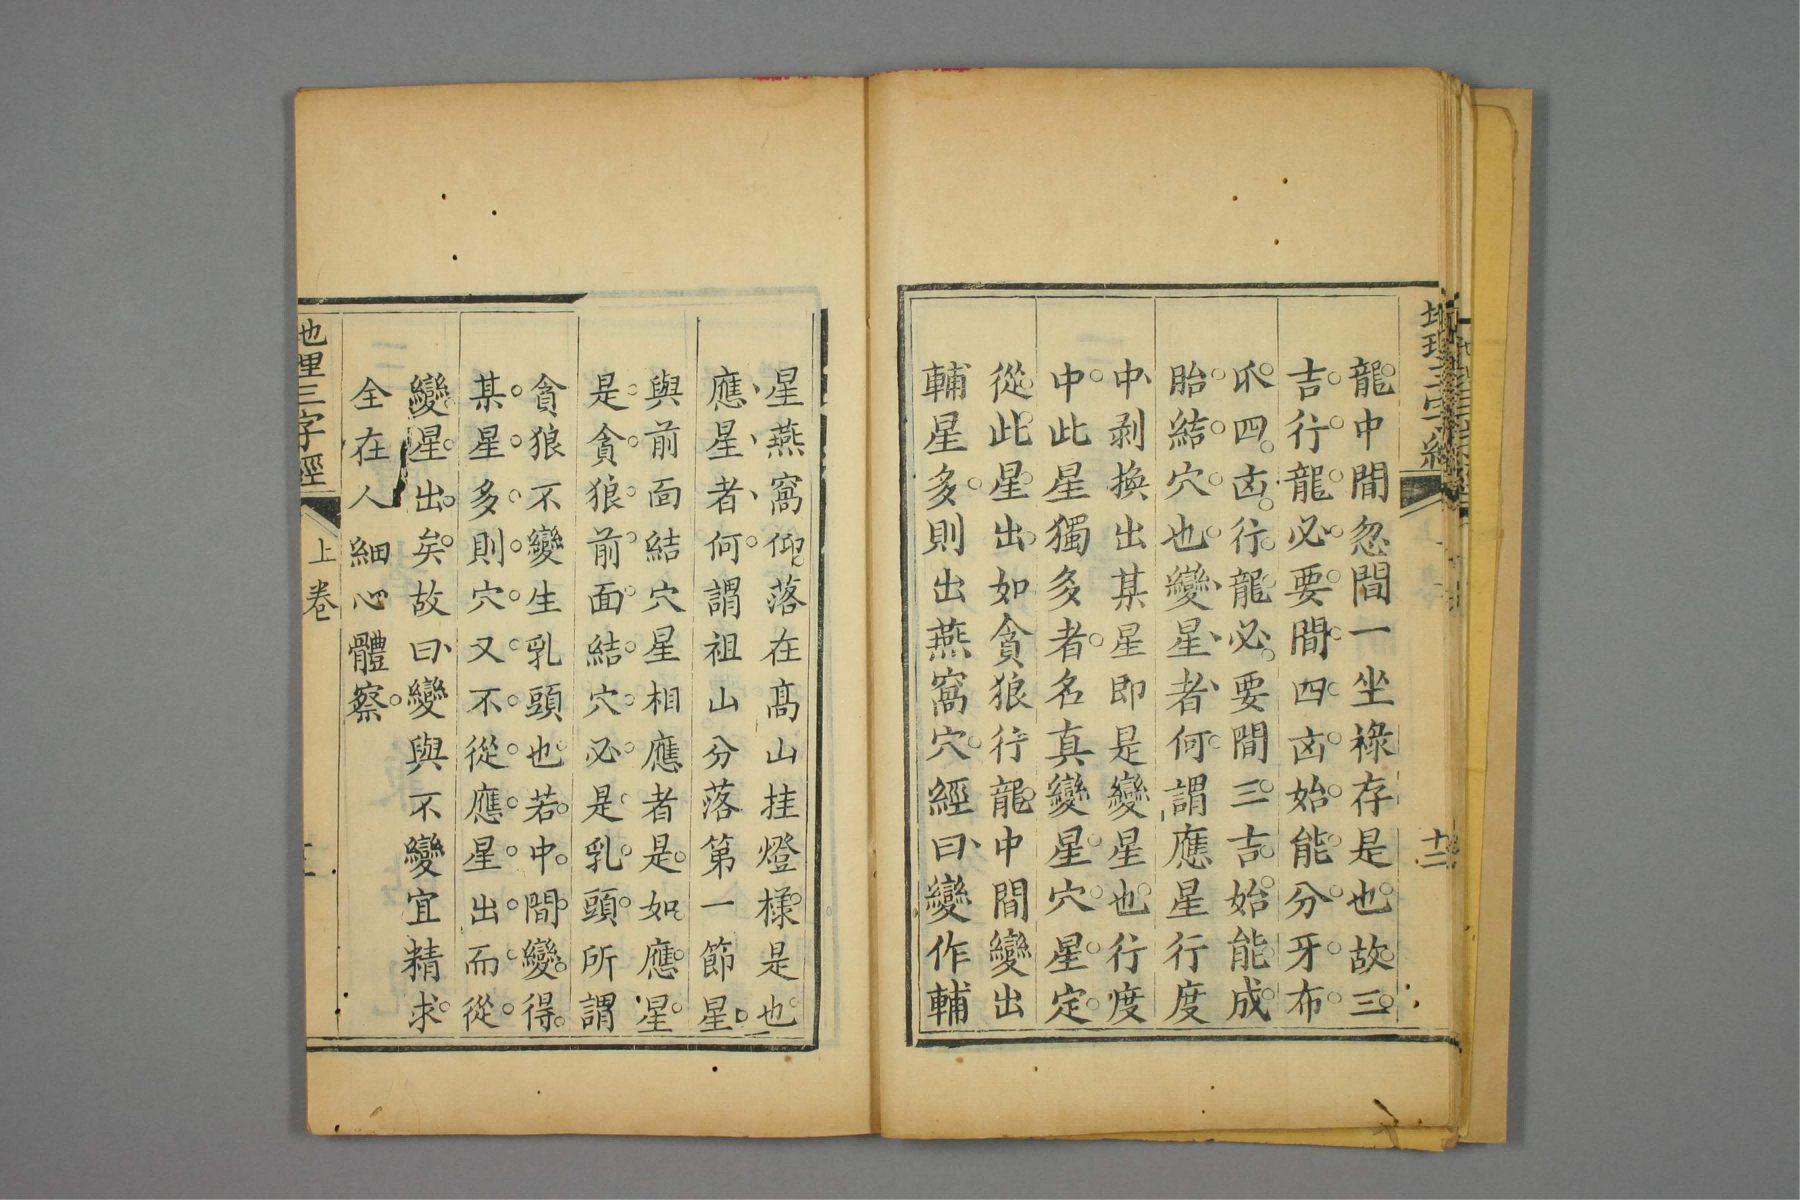 地理三字經
十二
龍中間忽間一坐祿存是也故三
吉行龍必要間四凶始能分牙布
爪四凶行龍必要間三吉始能成
胎結穴也變星者何謂應星行度
中剥換出某星即是變星也行度
中此星獨多者名真變星穴星定
從此星出如貪狼行龍中間變出
輔星多則出燕窩穴經曰變作輔
星燕窩仰落在高山挂燈樣是也
應星者何謂祖山分落第一節星
與前面結穴星相應者是如應星
是貪狼前面結穴必是乳頭所謂
貪狼不變生乳頭也若中間變得
某星多則穴又不從應星出而從
變星出矣故曰變與不變宜精求
全在人細心體察
地理三字經
上卷